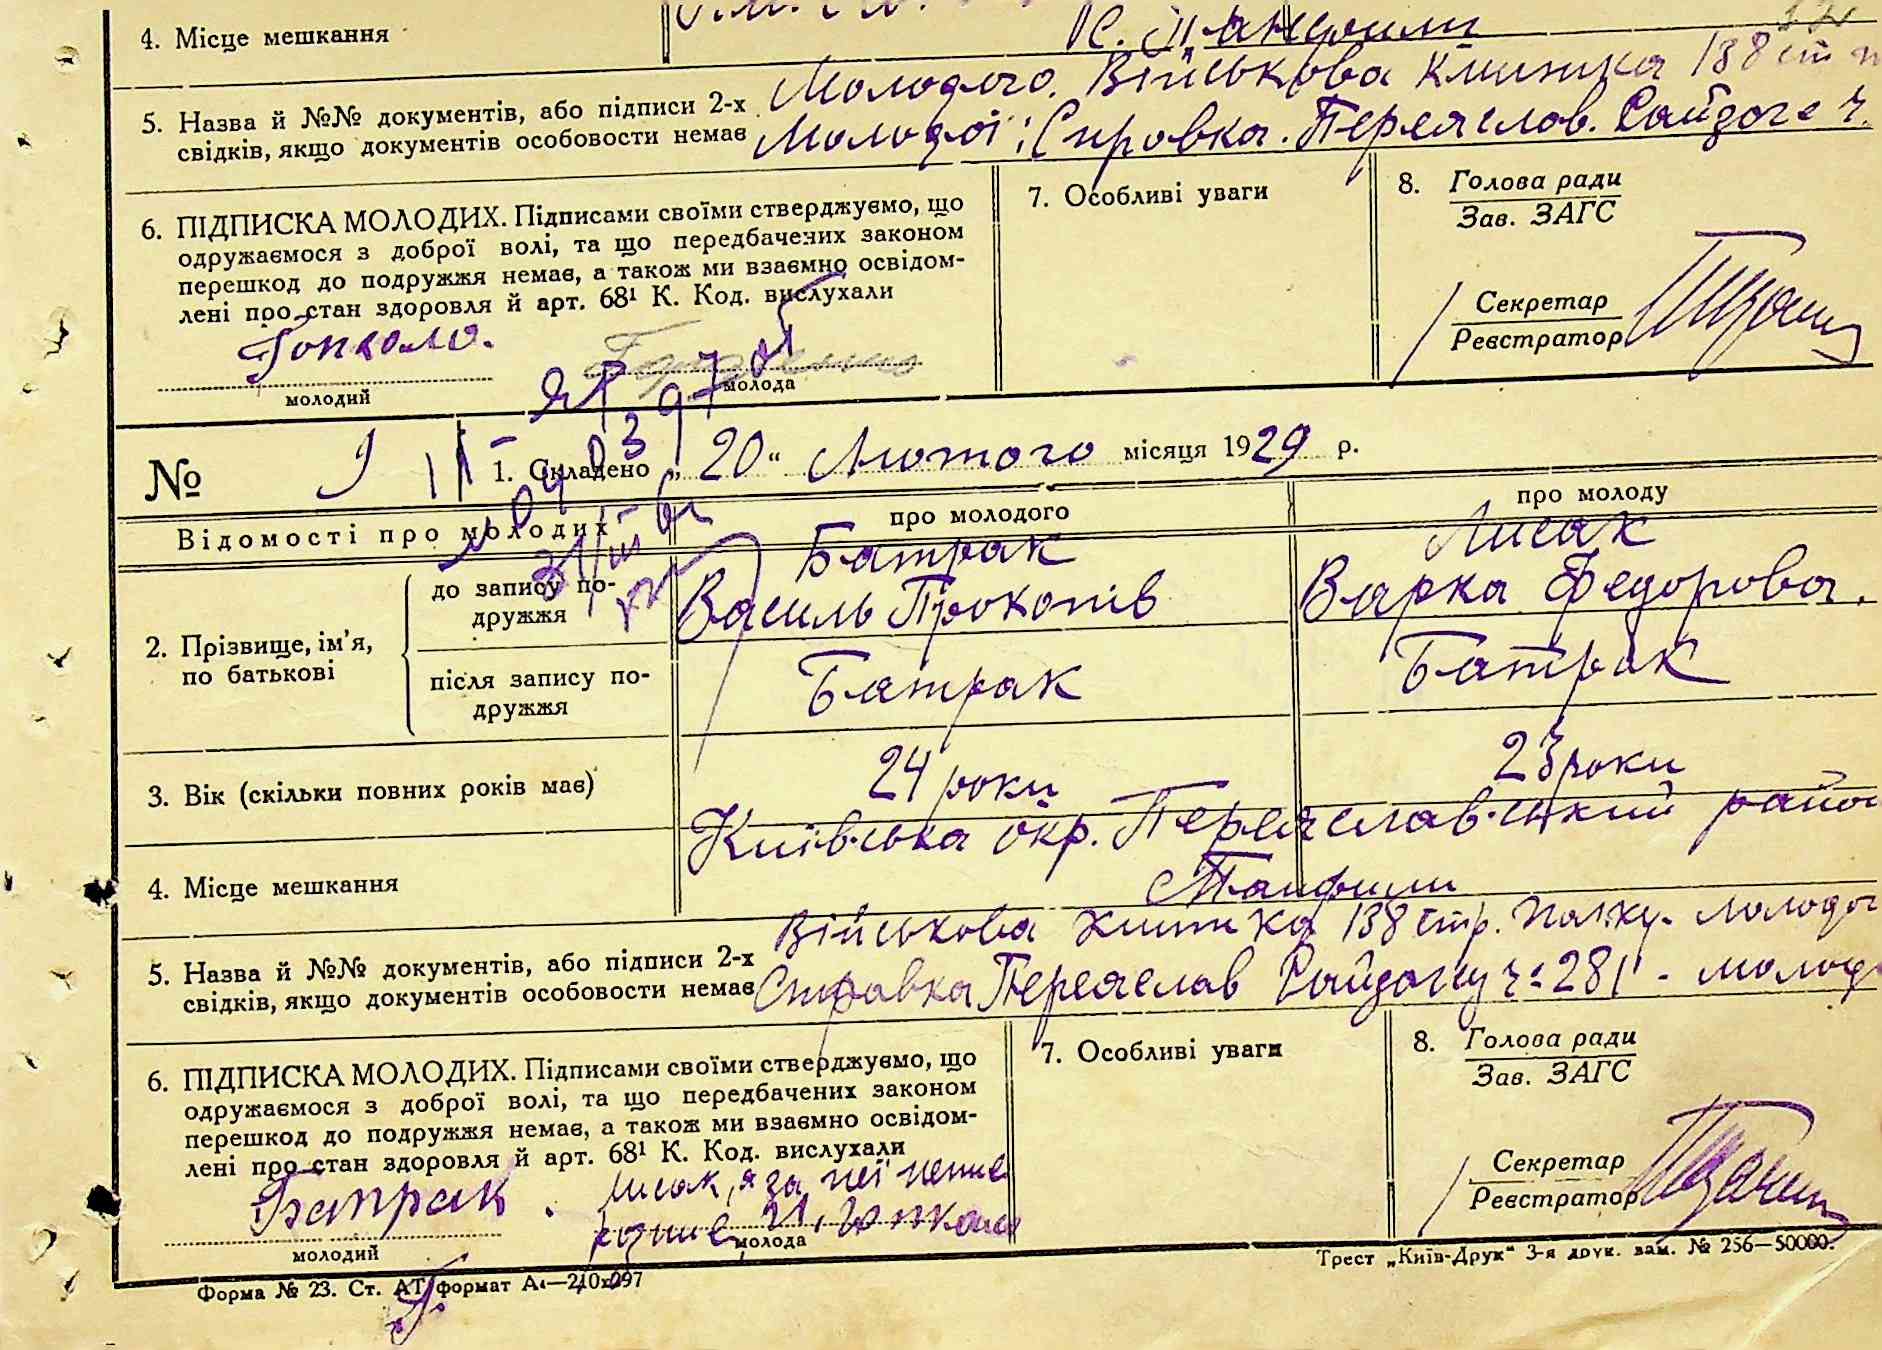 4. Місце мешкання
с. Панфили
5. Назва й №№ документів, або підписи 2-х
свідків, якщо документів особовости немає
Молодого. Військова книжка 138 ст
Молодої: Справка. Переяслов.
6. ПІДПИСКА МОЛОДИХ. Підписами своїми стверджуємо, що
одружаємося з доброї волі, та що передбачених законом
перешкод до подружжя немає, а також ми взаємно освідом-
лені про стан здоровля й арт. 68¹ К. Код. вислухали
молодий
молода
7. Особливі уваги
8. Голова ради
Зав. ЗАГС
Секретар
Реєстратор
№ 9
1. Складено „20“ Лютого місяця 1929 р.
Відомості про молодих
про молодого
про молоду
2. Прізвище, ім'я,
по батькові
до запису по-
дружжя
Батрак
Василь Прокопів
Лисак
Варка Федорова.
після запису по-
дружжя
Батрак
Батрак
3. Вік (скільки повних років має)
24 роки
23 роки
4. Місце мешкання
Київська окр. Переяславський район
с Панфили
5. Назва й №№ документів, або підписи 2-х
свідків, якщо документів особовости немає
Військова книжка 138 стр. полку - молодог
Справка Переяслав 281 - молод
6. ПІДПИСКА МОЛОДИХ. Підписами своїми стверджуємо, що
одружаємося з доброї волі, та що передбачених законом
перешкод до подружжя немає, а також ми взаємно освідом-
лені про стан здоровля й арт. 68¹ К. Код. вислухали
Батрак.
Лисак, а за неї
молодий
молода
7. Особливі уваги
8. Голова ради
Зав. ЗАГС
Секретар
Реєстратор
Форма № 23. Ст. АТ, формат А₄—210х297
Трест „Київ-Друк“ 3-я друк. зам. № 256—50000.